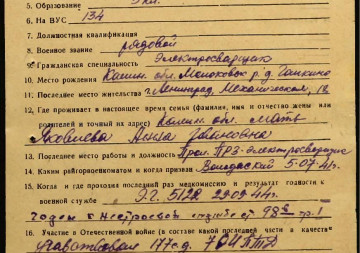 5. Образование
6. На ВУС 134
7. Должностная квалификация
8. Военное звание рядовой
9. Гражданская специальность Электросварщик
10. Место рождения Калин. обл. Молоковск р-д.
11. Последнее место жительства г. Ленинград, Механическая, 18
12. Где проживает в настоящее время семья (фамилия, имя и отчество жены или
родителей и точный их адрес) Калин. обл. Мать
Яковлева Анна Ивановна
13. Последнее место работы и должность ПРЗ-электросварщик
14. Каким райгорвоенкоматом и когда призван Володарский 5-07-41г.
15. Когда и где проходил последний раз медкомиссию и результат годности к
военной службе Э.Г. 5128 29.09.44г.
Годен к нестроевой службе ст. 98 гр. 1
16. Участие в Отечественной войне (в составе какой последней части и в качестве
177сд. 7 ОИПТД